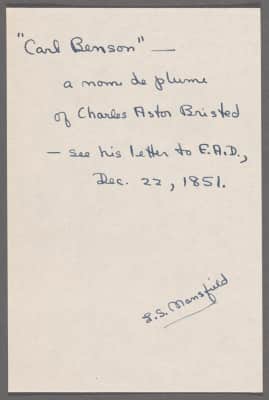 "Carl Benson" —
a nom de plume
of Charles Astor Bristed
— see his letter to E.A.D.,
Dec. 22, 1851.
L.S. Mansfield